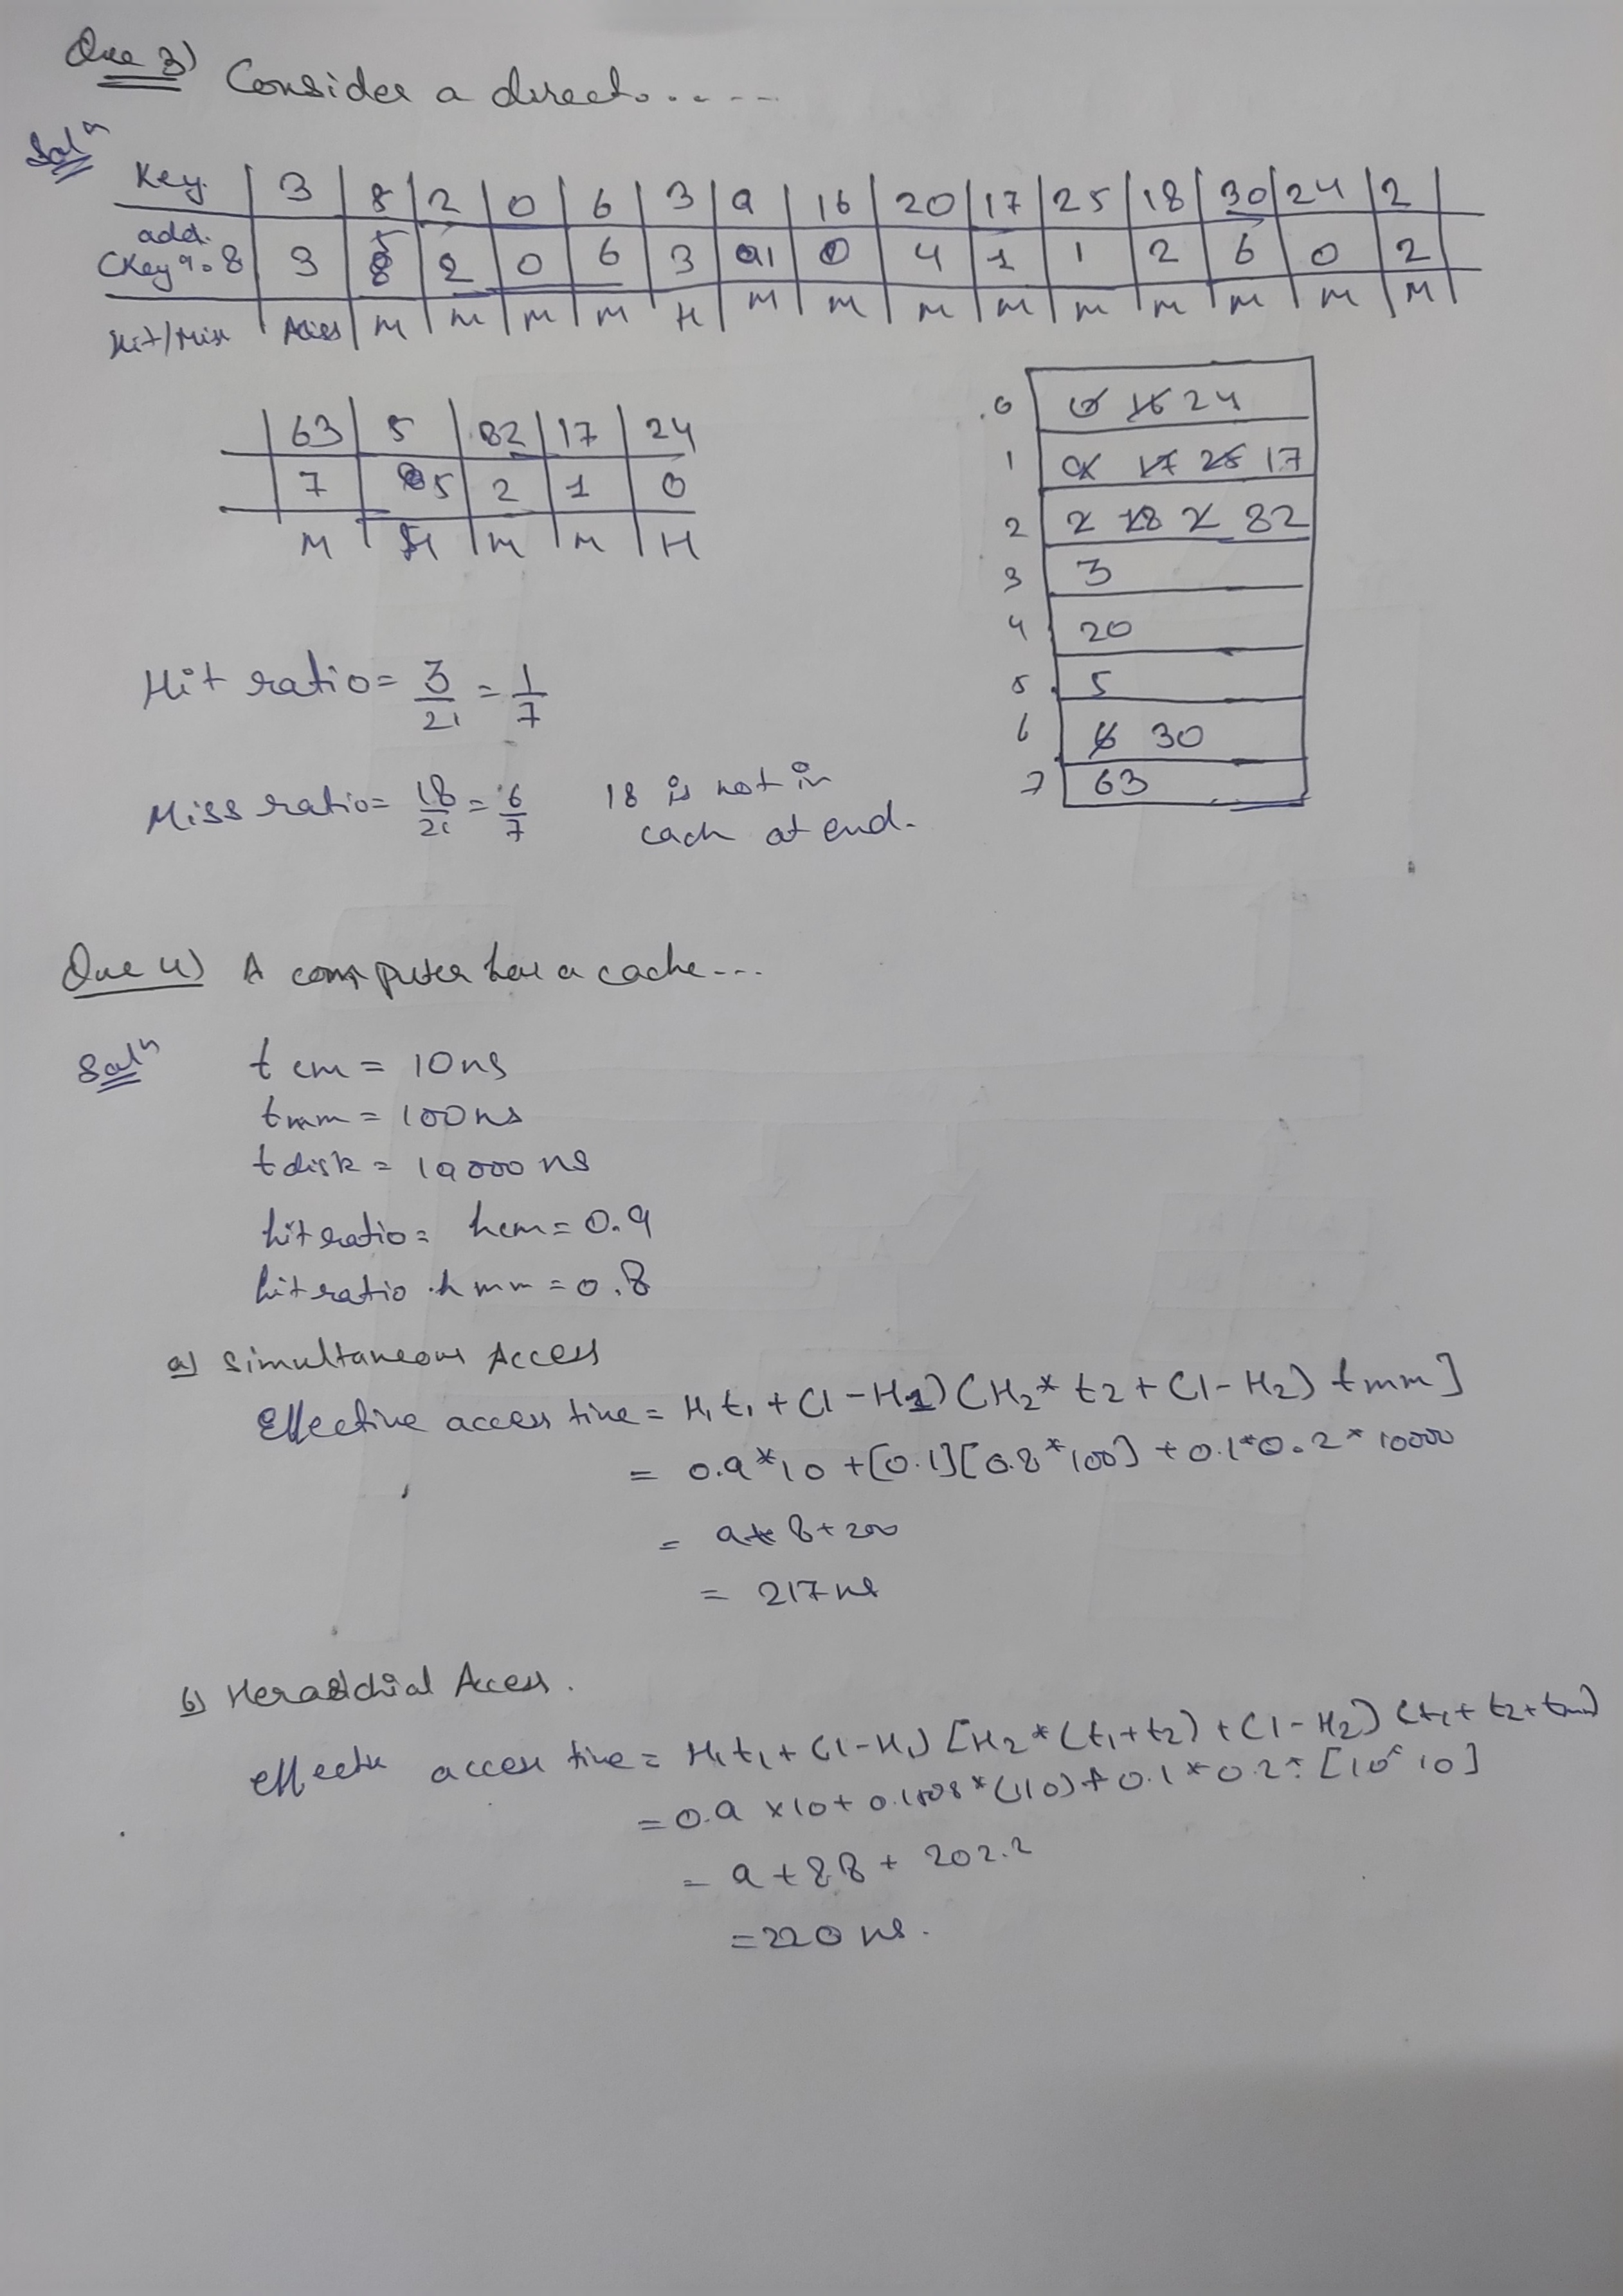 Que 3) Consider a direct.....
Solⁿ
Key. 3 5 2 0 6 3 9 16 20 17 25 18 30 24 2
add. (Key % 8 3 5 2 0 6 3 1 0 4 1 1 2 6 0 2
Hit/Miss M M M M H M M M M M M M M M
63 5 82 17 24
7 5 2 1 0
M H M M H
0 0 16 24
1 9 17 25 17
2 2 18 2 82
3 3
4 20
5 5
6 6 30
7 63
Hit ratio = 3/21 = 1/7
Miss ratio = 18/21 = 6/7 18 is not in
cach at end.
Que 4) A computer has a cache...
Solⁿ tcm = 10ns
tmm = 100ns
tdisk = 10000 ns
hit ratio = hcm = 0.9
hit ratio hmm = 0.8
a) Simultaneous Access
Effective access time = H₁t₁ + (1-H1) (H₂* t2 + (1-H₂) tmm]
= 0.9*10 + [0.1][0.8*100] + 0.1*0.2*10000
= 9+8+200
= 217ns
b) Access.
access time = H₁t₁ + (1-H₁) [H₂*(t₁+t₂) + (1-H₂) (t₁+t2+tmm)
= 0.9 ×10+ 0.1 *(110) + 0.1*0.2*
= 9 + 8.8 + 202.2
= 220 ns.